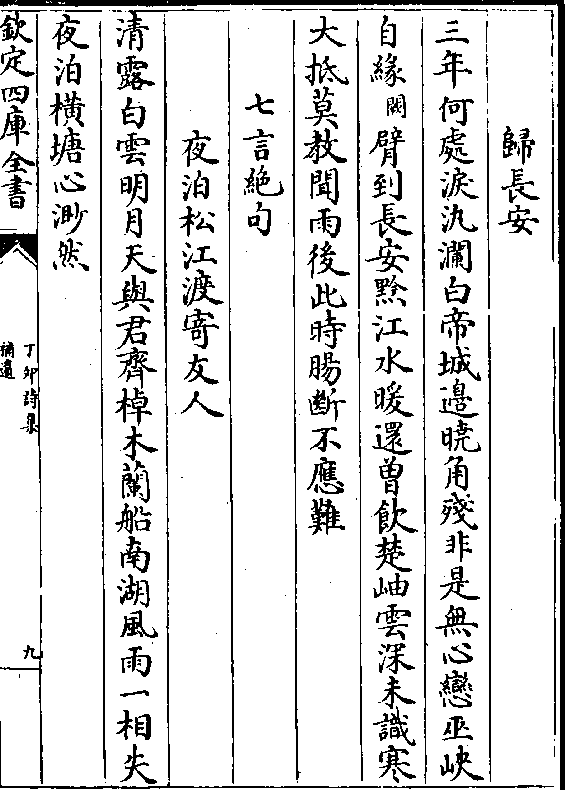 歸長安
三年何處淚汍瀾白帝城邊曉角殘非是無心戀巫峽
自緣闕臂到長安黔江水暖還曾飲楚岫雲深未識寒
大抵莫教聞雨後此時腸斷不應難
七言絶句
夜泊松江渡寄友人
清露白雲明月天與君齊棹木蘭船南湖風雨一相失
夜泊橫塘心渺然
欽定四庫全書
丁卯詩集
補遺
九